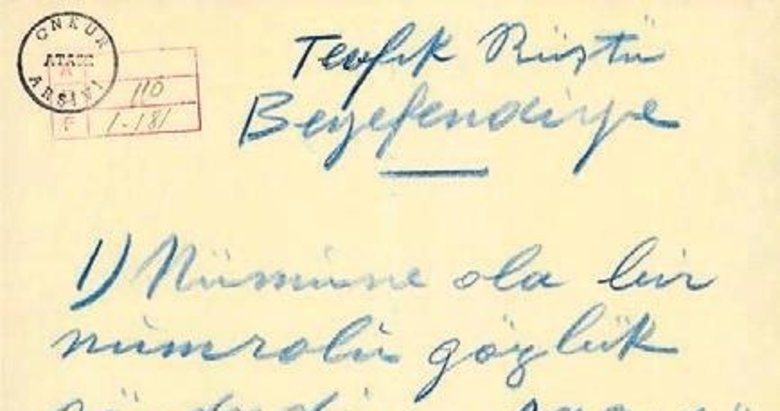 CNKUR
ATASE
ARŞİVİ
A
110
F
1-181
Tevfik Rüştü
Beyefendiye
1) Nümüne ola bir
numrolu gözlük